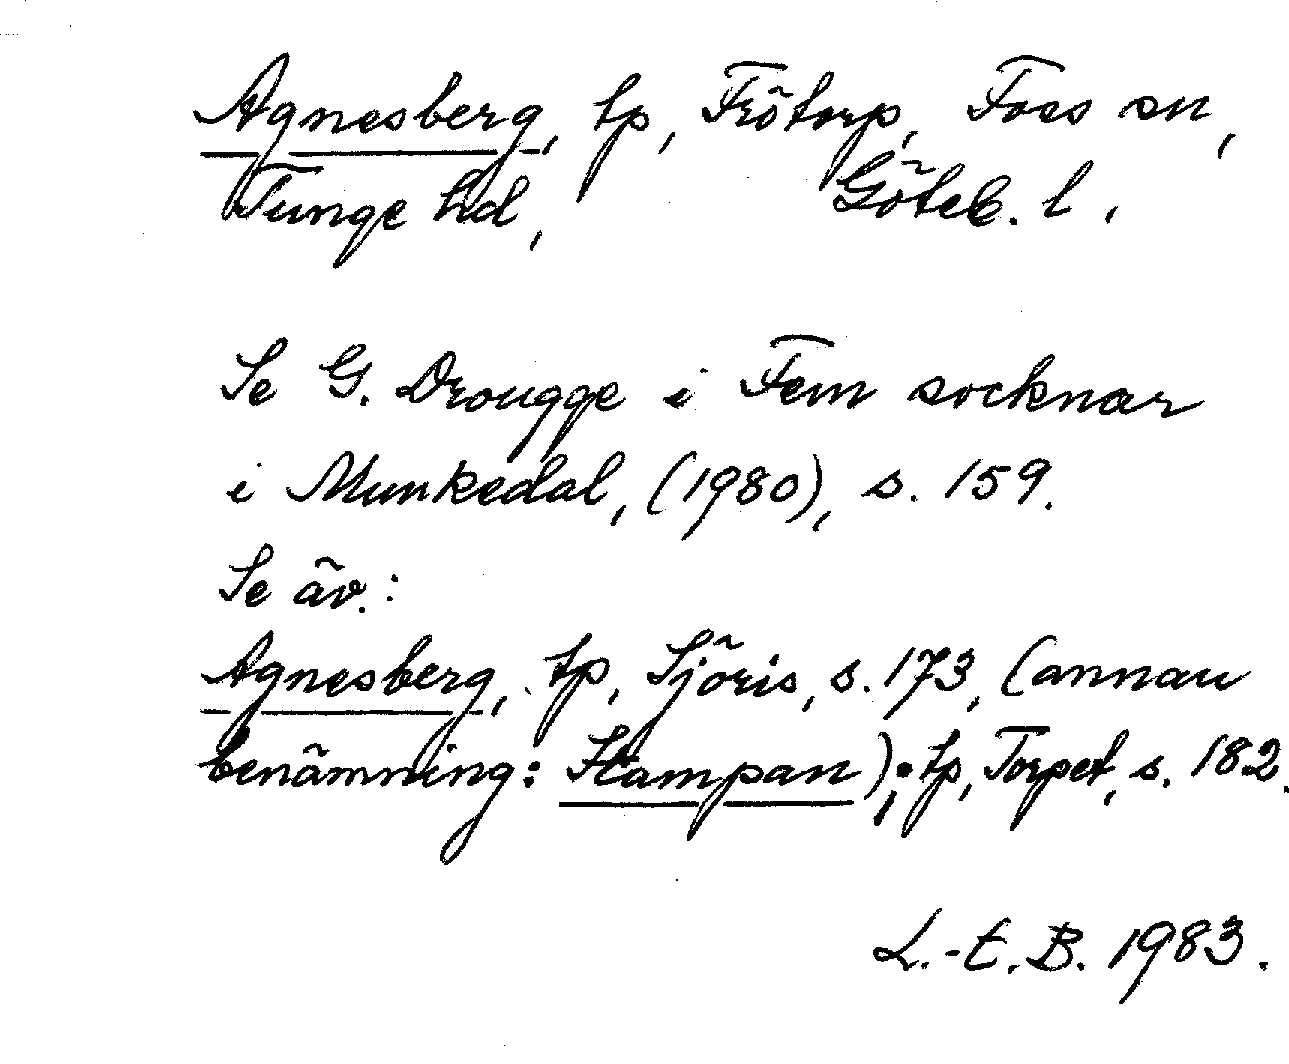 Agnesberg, tp, Frötorp, Foss sn,
Tunge hd, Göteb. l.,
Se G. Drougge i Fem socknar
i Munkedal, (1980), s. 159.
Se äv.:
Agnesberg, tp, Sjöris, s. 173, (annan
benämning: Stampan); tp, Torpet, s. 182.
L.-E. B. 1983.